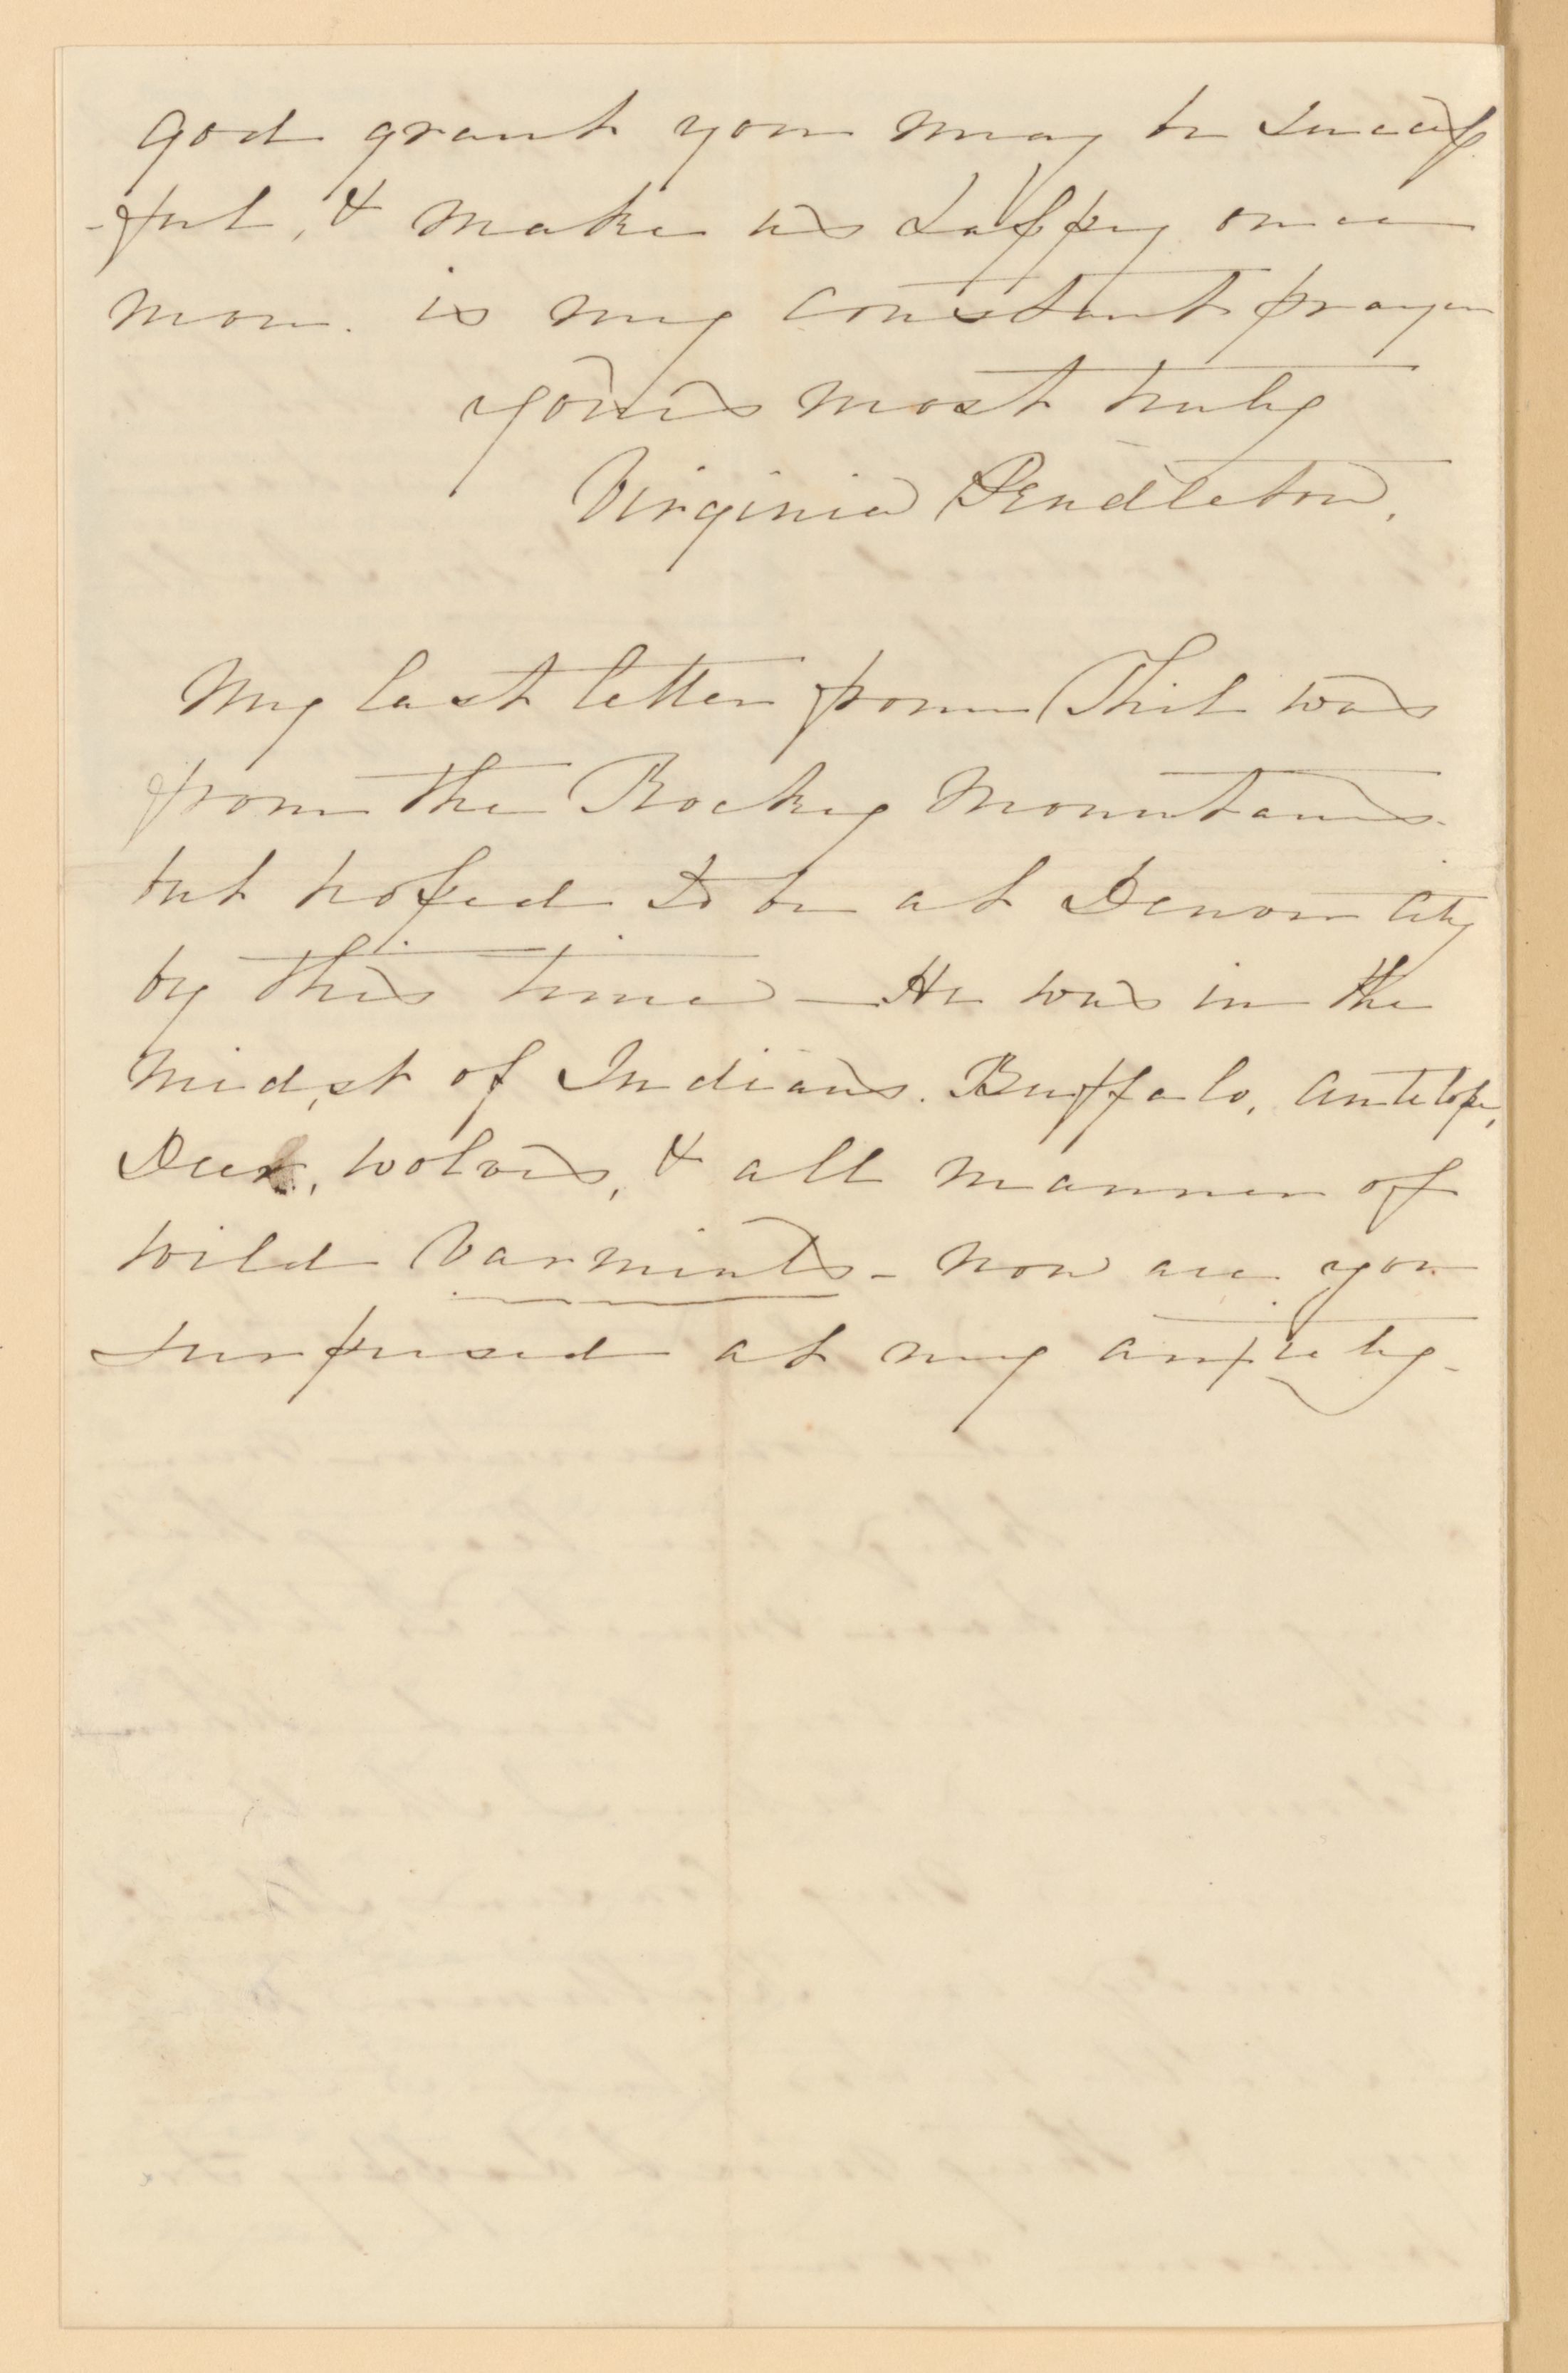 God grant you may be success
-ful, & make us happy once
more. is my constant prayer
yours most truly
Virginia Pendleton,
My last letter from Phil was
from the Rocky Mountains.
but hoped to be at Denver City
by this time – He was in the
midst of Indians. Buffalo, antelope,
Deer, wolves, & all manner of
wild Varmints – now are you
surprised at my anxiety –